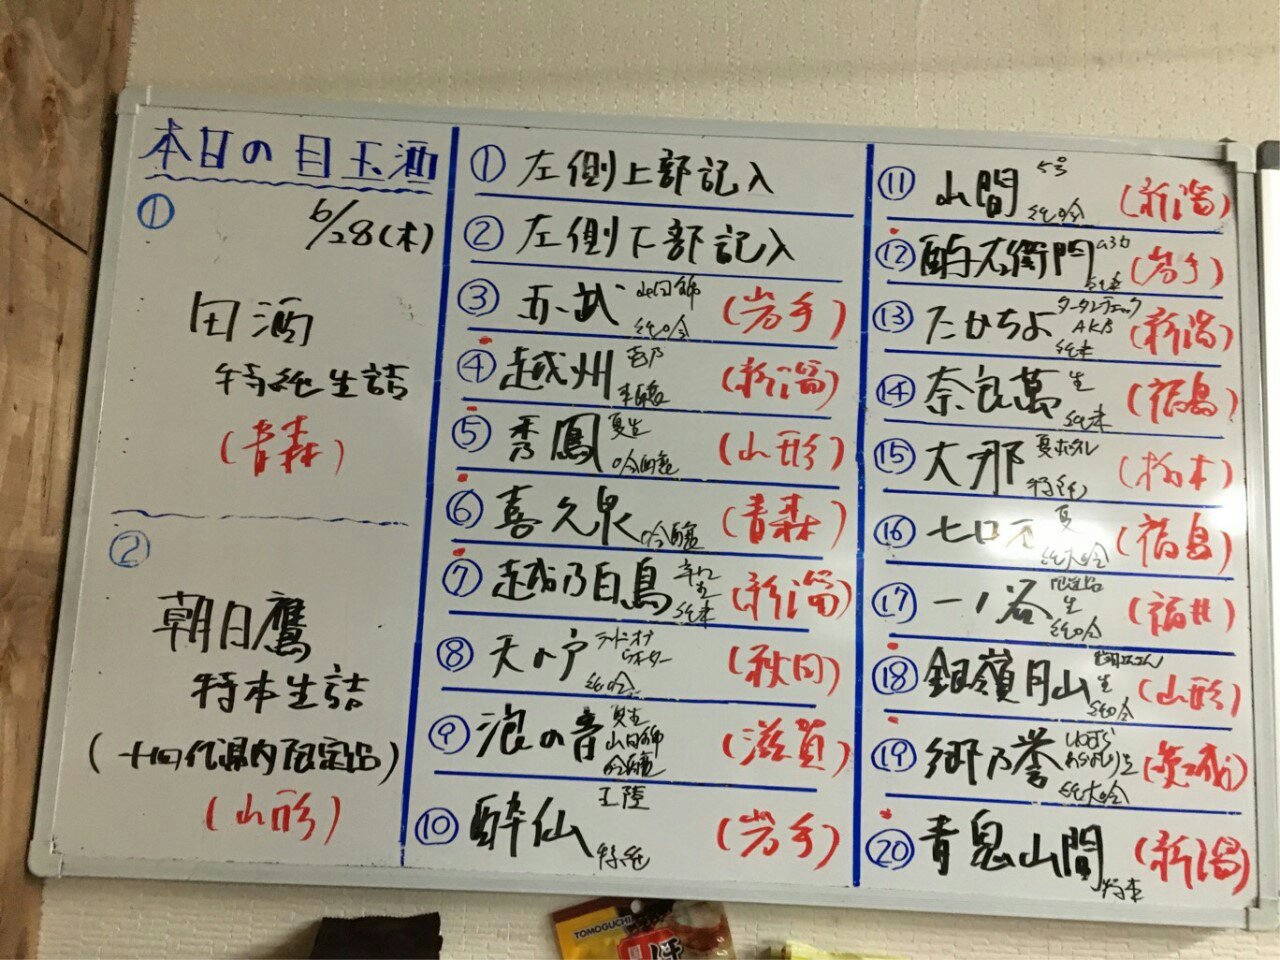 本日の目玉酒
① 6/28(木)
田酒
特純生詰
(青森)
②
朝日鷹
特本生詰
(十四代県内限定品)
(山形)
① 左側上部記入
② 左側下部記入
③ 五武 山田錦 純吟 (岩手)
④ 越州 (新潟)
⑤ 秀鳳 夏生 吟醸 (山形)
⑥ 喜久泉 吟醸 (青森)
⑦ 越乃白鳥 辛口 生 純本 (新潟)
⑧ 天の戸 ランドオブウォーター 純吟 (秋田)
⑨ 浪の音 夏生 山田錦 吟醸 (滋賀)
⑩ 酔仙 特純 (岩手)
⑪ 山間 5号 純吟 (新潟)
⑫ 酉与右衛門 純米 (岩手)
⑬ たかちよ タータンチェック 純米 (新潟)
⑭ 奈良萬 生 純米 (福島)
⑮ 大那 夏 特純 (栃木)
⑯ 七ロ万 夏 純大吟 (福島)
⑰ 一ノ谷 限定品 生 純吟 (福井)
⑱ 銀嶺月山 生 純吟 (山形)
⑲ 郷乃誉 純大吟 (茨城)
⑳ 青鬼山間 特本 (新潟)
TOMOGUCHI